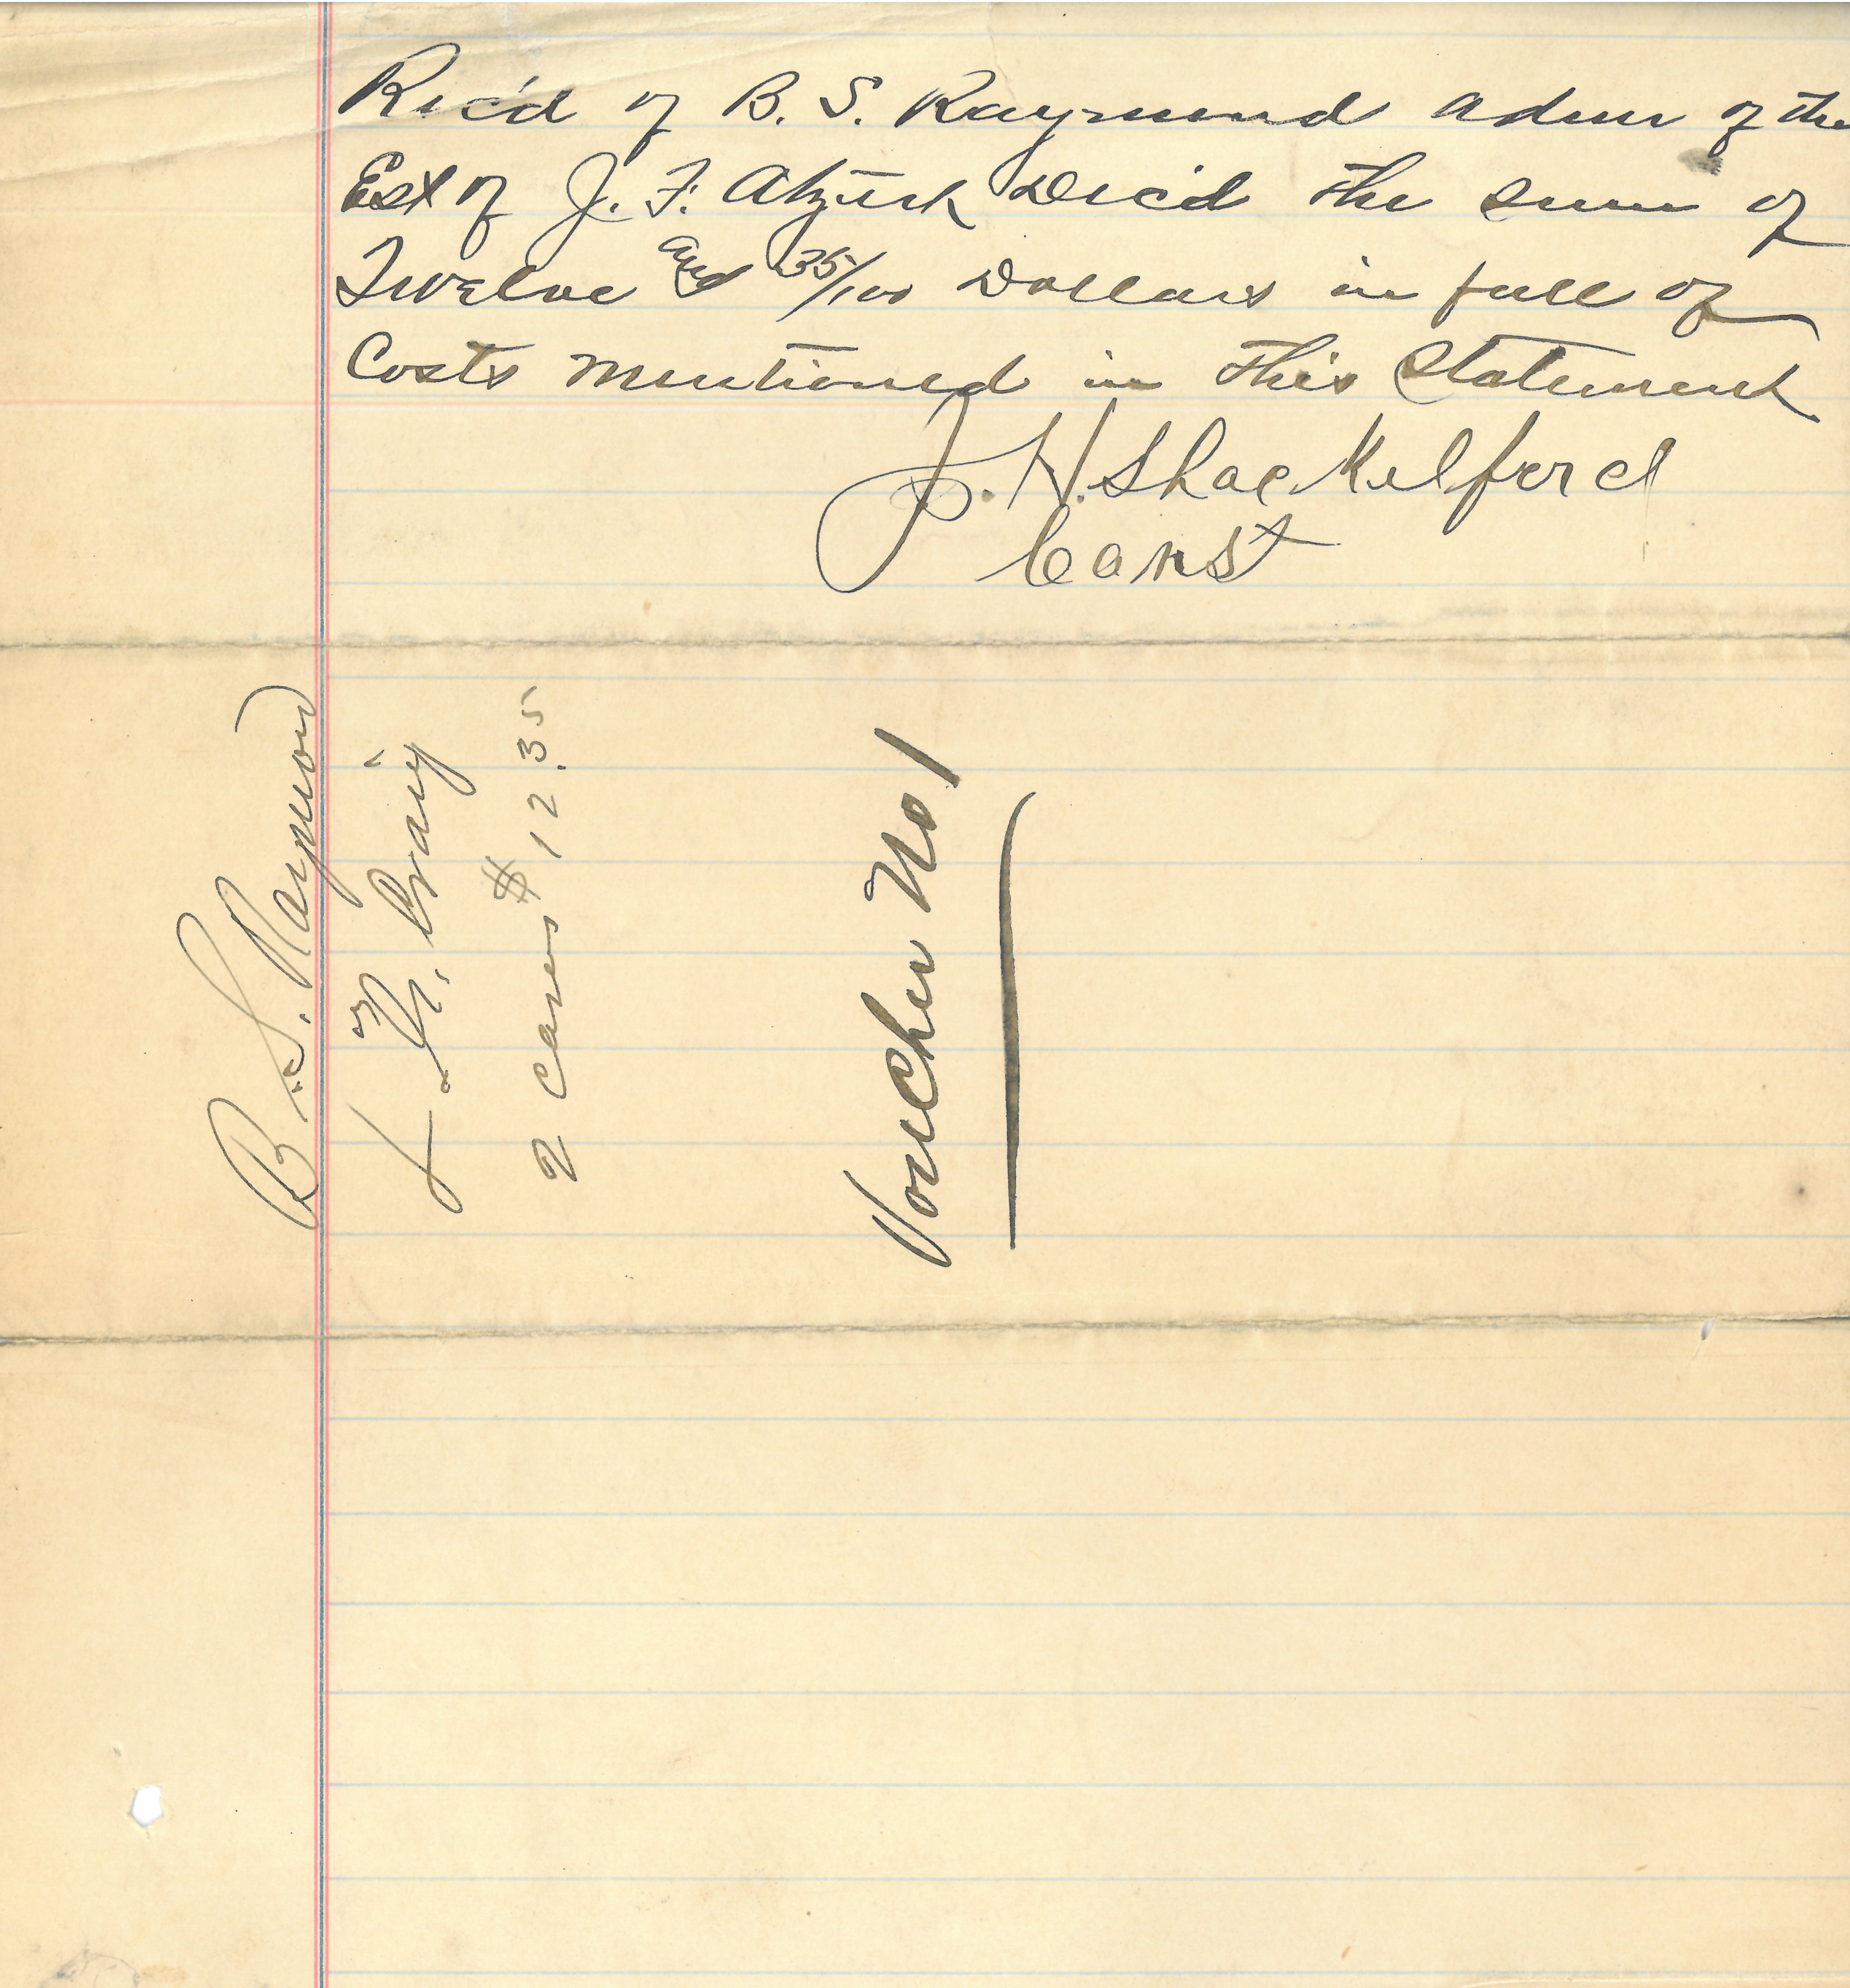 Rec'd of B. S. Raymond Admr of the
Est of J. F. Dec'd the sum of
Twelve and 35/100 Dollars in full of
Costs mentioned in this statement
J. H. Shackelford
Const
B. S. Raymond
Craig
2 cases $12.35
Voucher No 1